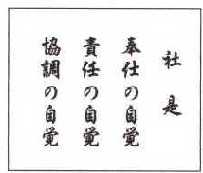 社是
奉仕の自覚
責任の自覚
協調の自覚